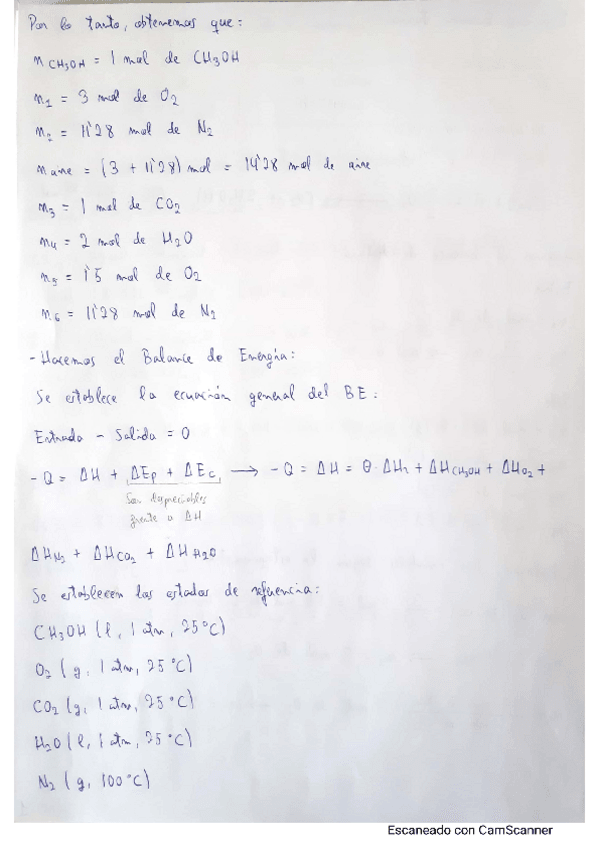 Por lo tanto, obtenemos que:
n CH3OH = 1 mol de CH3OH
n1 = 3 mol de O2
n2 = 11'28 mol de N2
n aire = (3 + 11'28) mol = 14'28 mol de aire
n3 = 1 mol de CO2
n4 = 2 mol de H2O
n5 = 1'5 mol de O2
n6 = 11'28 mol de N2
- Hacemos el Balance de Energía:
Se establece la ecuación general del BE:
Entrada - Salida = 0
- Q = ΔH + ΔEp + ΔEc → - Q = ΔH = θ · ΔHr + ΔHCH3OH + ΔHO2 +
Son despreciables
frente a ΔH
ΔHN2 + ΔHCO2 + ΔHH2O
Se establecen los estados de referencia:
CH3OH (l, 1 atm, 25°C)
O2 (g, 1 atm, 25°C)
CO2 (g, 1 atm, 25°C)
H2O (l, 1 atm, 25°C)
N2 (g, 100°C)
Escaneado con CamScanner